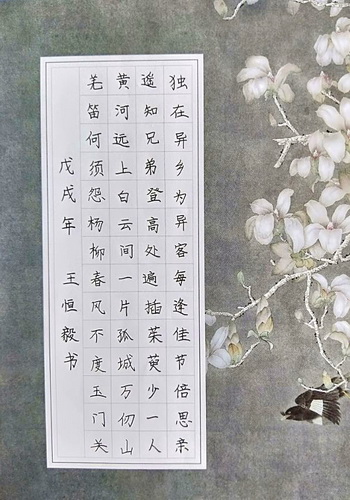 独在异乡为异客每逢佳节倍思亲
遥知兄弟登高处遍插茱萸少一人
黄河远上白云间一片孤城万仞山
羌笛何须怨杨柳春风不度玉门关
戊戌年 王恒毅书